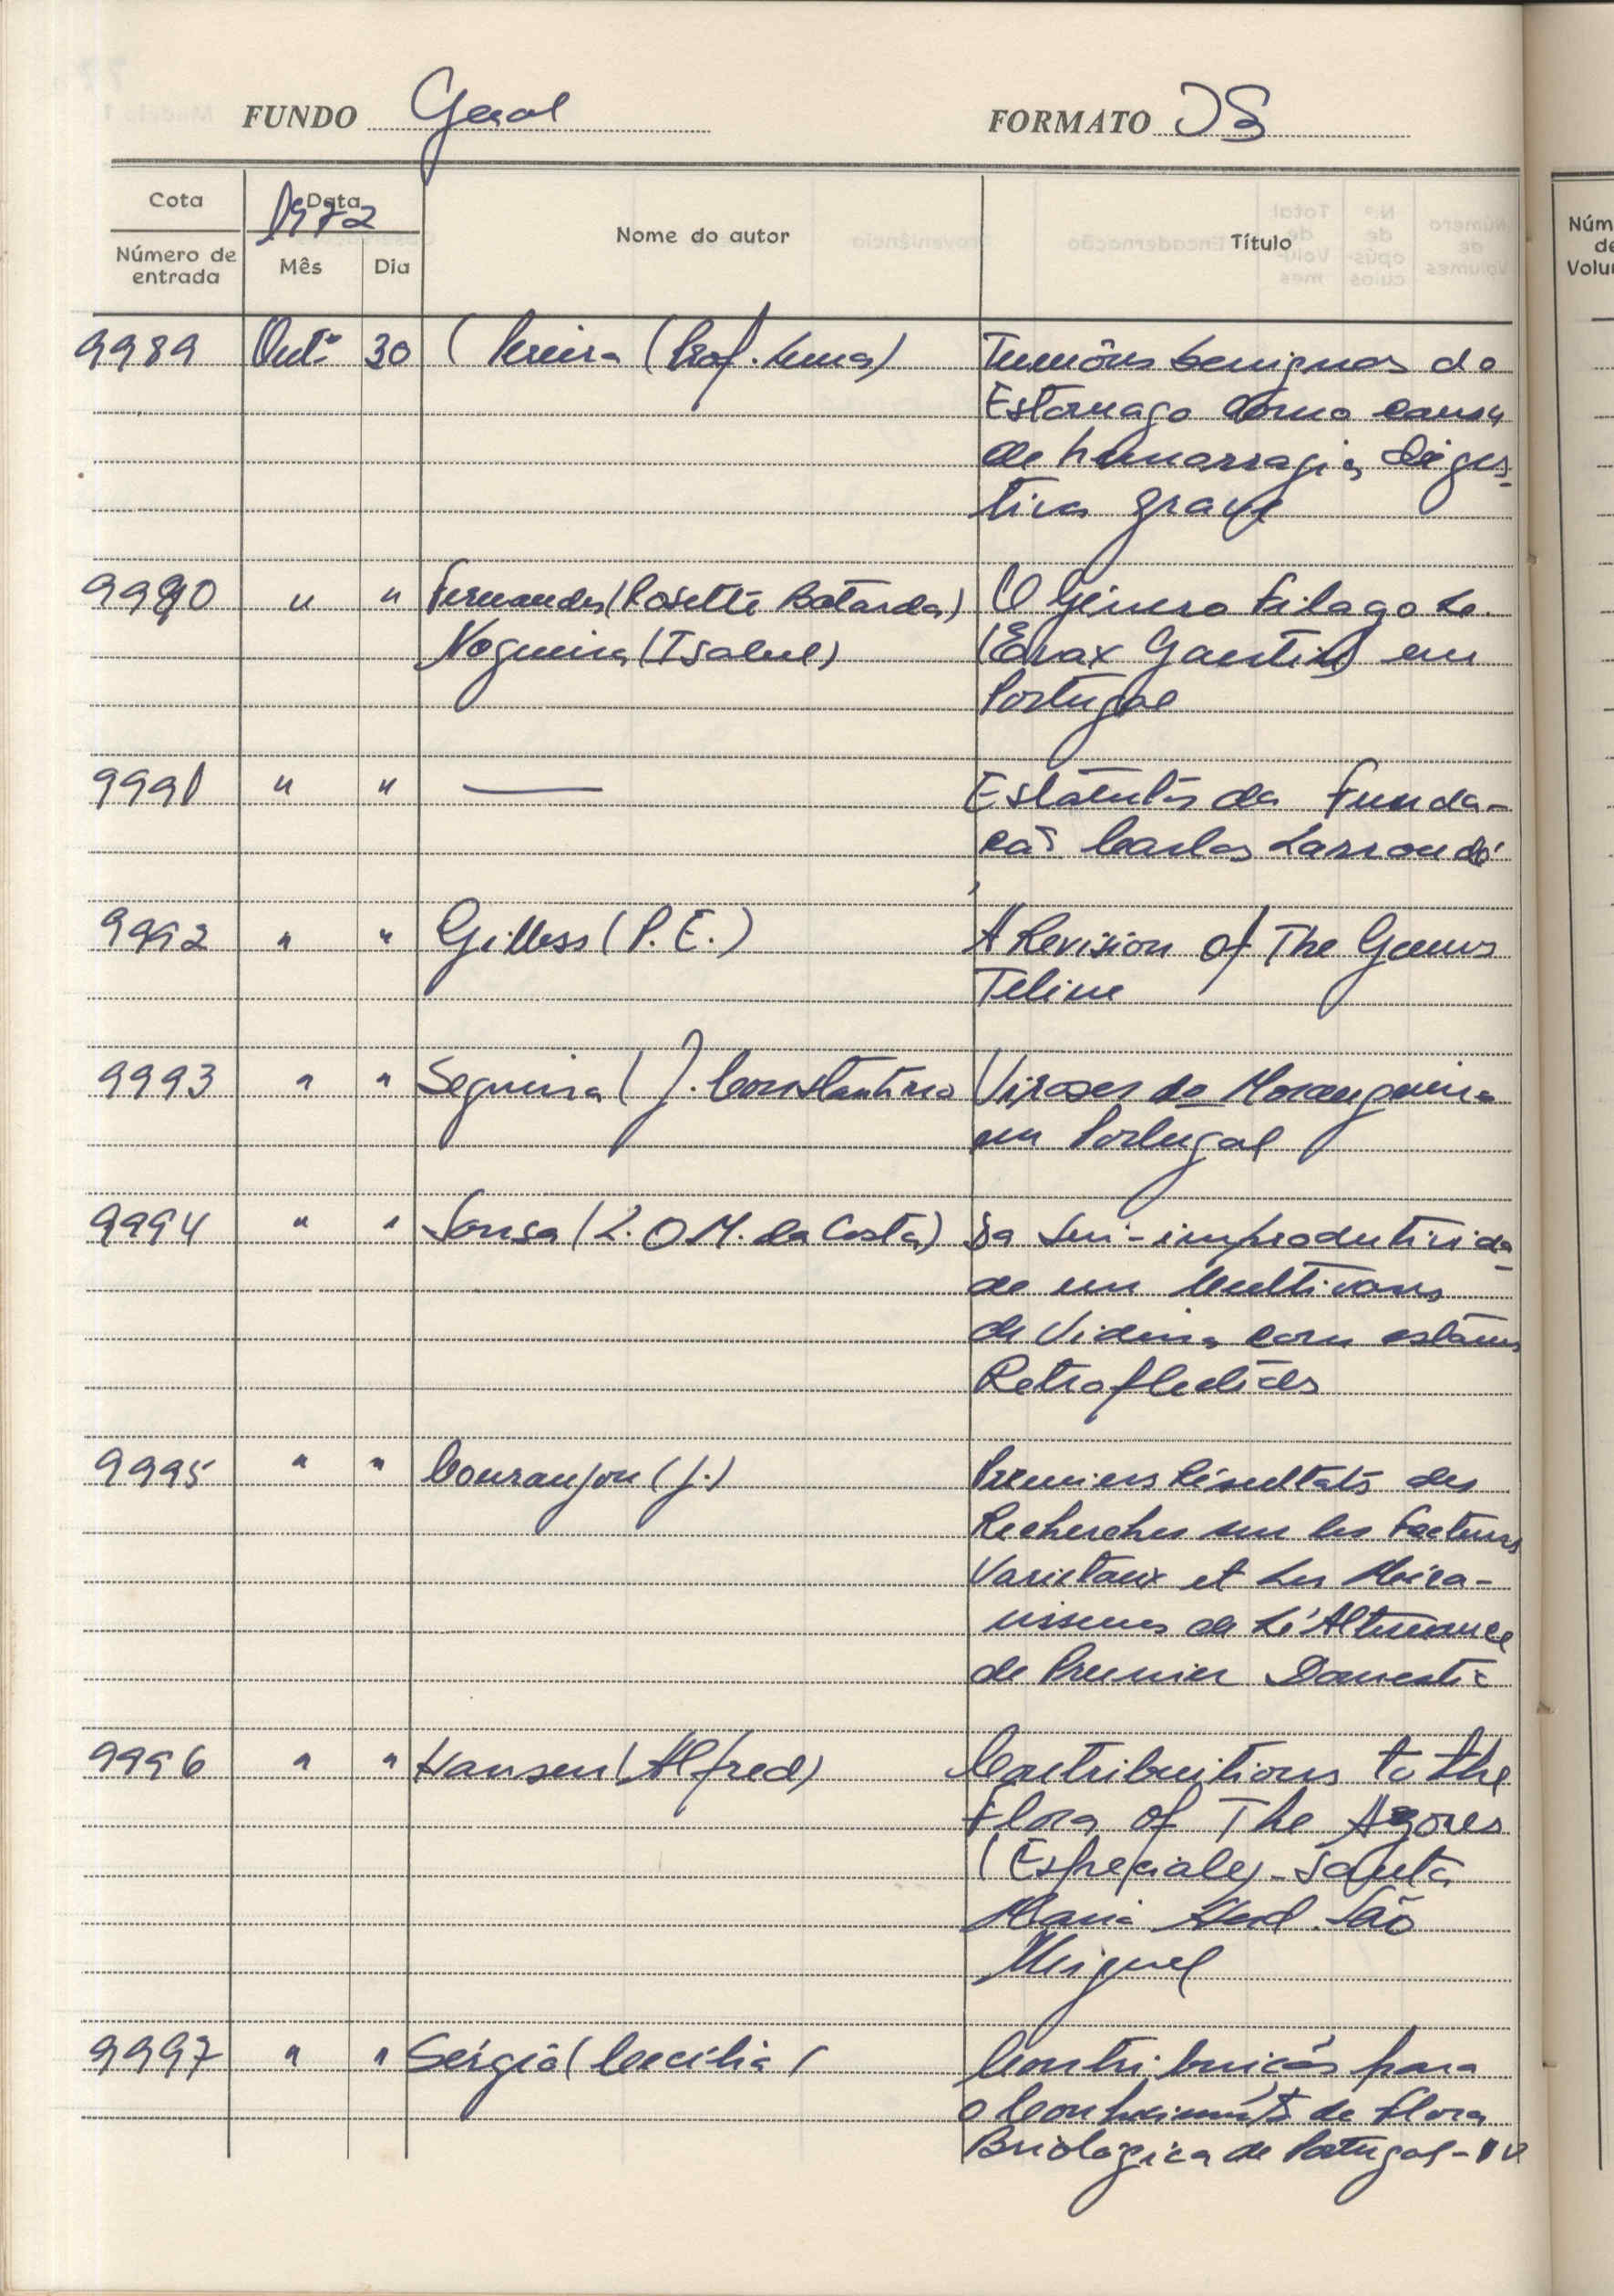 FUNDO Geral FORMATO DS
Cota Data Nome do autor Título
1972
Número de entrada Mês Dia
9989 Outº 30 Pereira (Prof. Lima) Tumôres benignos do
Estomago como causa
de hemorragia diges-
tiva grave
9990 " " Fernandes (Rosette Batarda) O Género Filago L.
Nogueira (Isabel) (Evax Gaertin) em
Portugal
9991 " " — Estatutos da Funda-
ção Carlos Larroudé
9992 " " Gilless (P. E.) A Revision of The Genus
Teline
9993 " " Sequeira (J. Constantino Viroses do Morangueiro
em Portugal
9994 " " Sousa (L. O M. da Costa) Da Semi-improdutivida-
de em Cultivares
de Videira com estames
Retroflectidos
9995 " " Couranjou (J.) Premiers Résultats des
Recherches sur les Facteurs
Varietaux et Les Méca-
nismes de L'Alternance
de Prunier Domestic
9996 " " Hansen (Alfred) Contribuitions to the
Flora of The Azores
(Especialey - Santa
Maria And São
Miguel
9997 " " Sérgio (Cecília) Contribuição para
o Conhecimento de flora
Briologica de Portugal - IV
Núm
de
Volu